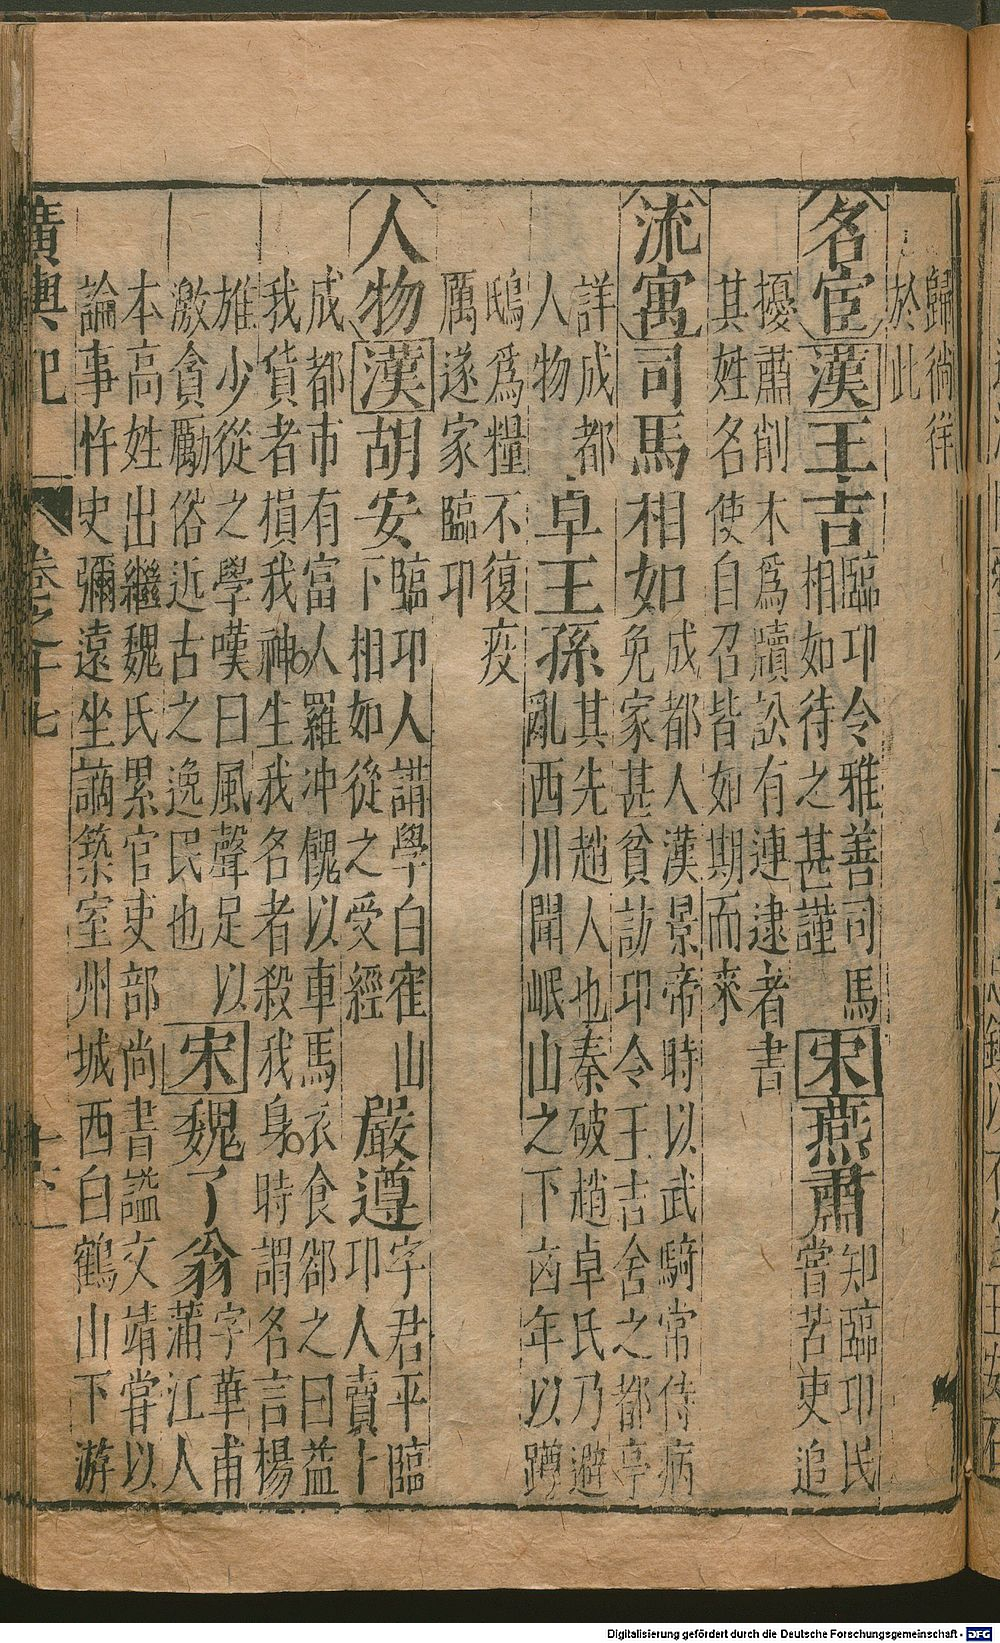 歸徜徉
於此
名宦 漢 王吉 臨卭令雅善司馬
相如待之甚謹 宋 燕肅 知臨卭民
嘗苦吏追
擾肅削木爲牘訟有連逮者書
其姓名使自召皆如期而來
流寓 司馬相如 成都人漢景帝時以武騎常侍病
免家甚貧訪卭令王吉舍之都亭
詳成都
人物 卓王孫 其先趙人也秦破趙卓氏乃避
亂西川聞岷山之下凶年以蹲
鴟爲糧不復疫
厲遂家臨卭
人物 漢 胡安 臨卭人講學白寉山
下相如從之受經 嚴遵 字君平臨
卭人賣卜
成都市有富人羅冲餽以車馬衣食郤之曰益
我貨者損我神生我名者殺我身時謂名言楊
雄少從之學嘆曰風聲足以
激貪勵俗近古之逸民也 宋 魏了翁 字華甫
蒲江人
本高姓出繼魏氏累官吏部尚書謚文靖嘗以
論事忤史彌遠坐謫築室州城西白鶴山下游
廣輿記 卷之十七
Digitalisierung gefördert durch die Deutsche Forschungsgemeinschaft - DFG